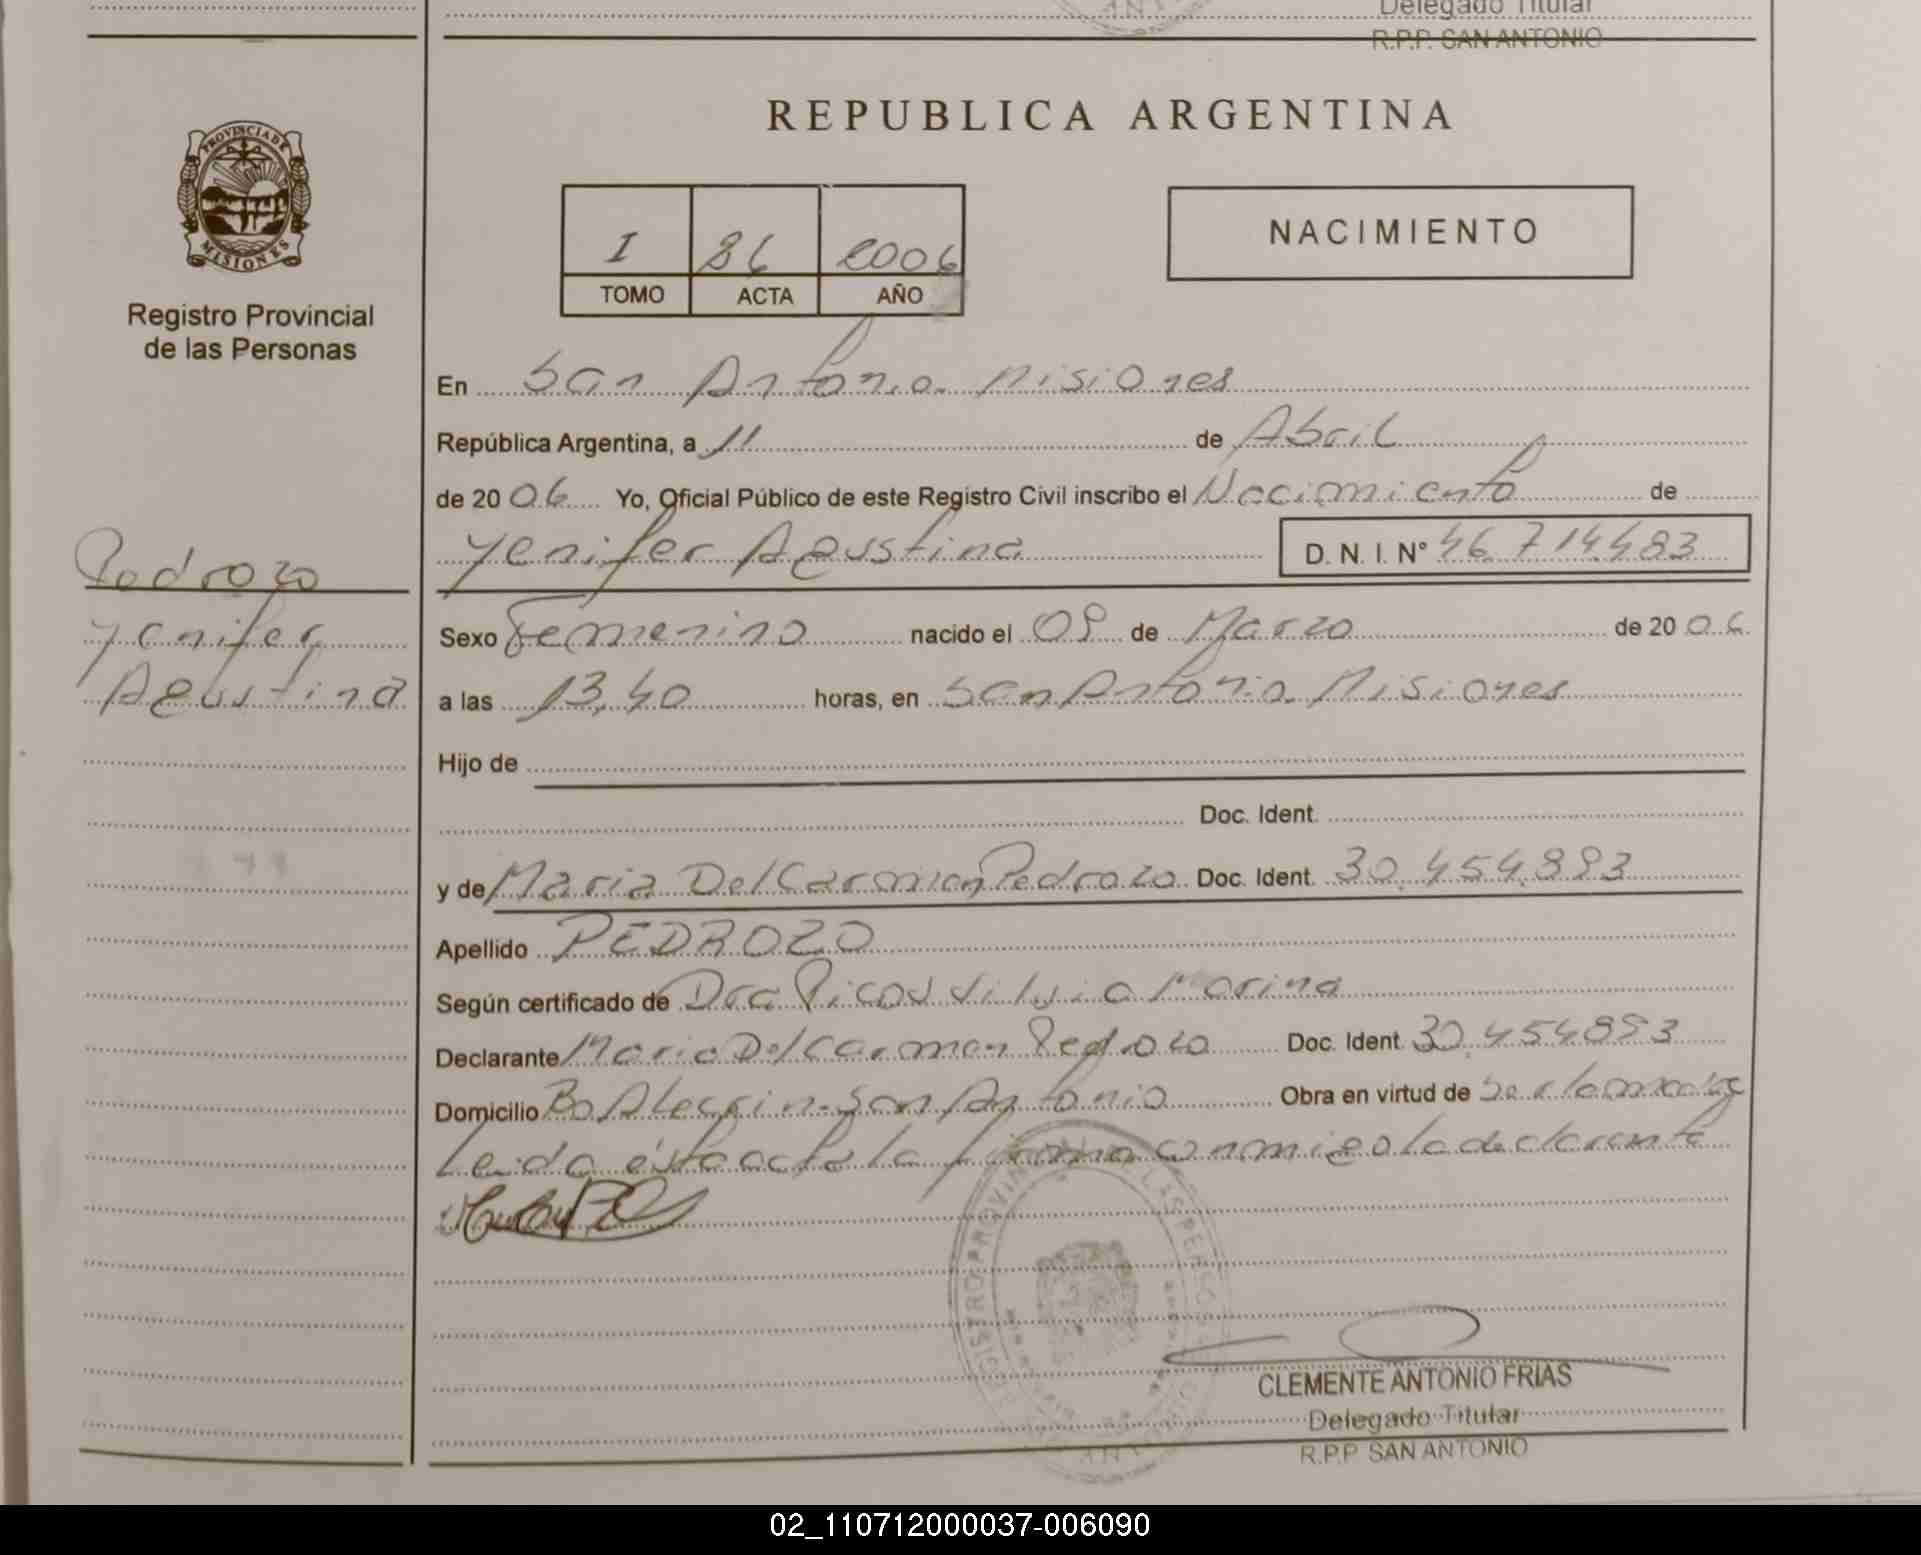 Delegado Titular
R.P.P. SAN ANTONIO
PROVINCIA DE
MISIONES
Registro Provincial
de las Personas
REPUBLICA ARGENTINA
I 86 2006
TOMO ACTA AÑO
NACIMIENTO
En San Antonio Misiones
República Argentina, a 11 de Abril
de 2006 Yo, Oficial Público de este Registro Civil inscribo el Nacimiento de
Yenifer Agustina D. N. I. N° 46.714.483
Pedrozo
Yenifer
Agustina
Sexo Femenino nacido el 09 de Marzo de 2006
a las 13,40 horas, en San Antonio Misiones
Hijo de
Doc. Ident.
y de Maria Del Carmen Pedrozo Doc. Ident. 30.454.893
Apellido PEDROZO
Según certificado de Dra Silvia Marina
Declarante Maria Del Carmen Pedrozo Doc. Ident. 30.454893
Domicilio Bo Alegrin - San Antonio Obra en virtud de Ser la madre
Leida ésta acta la firma conmigo la declarante
CLEMENTE ANTONIO FRIAS
Delegado Titular
R.P.P. SAN ANTONIO
02_110712000037-006090